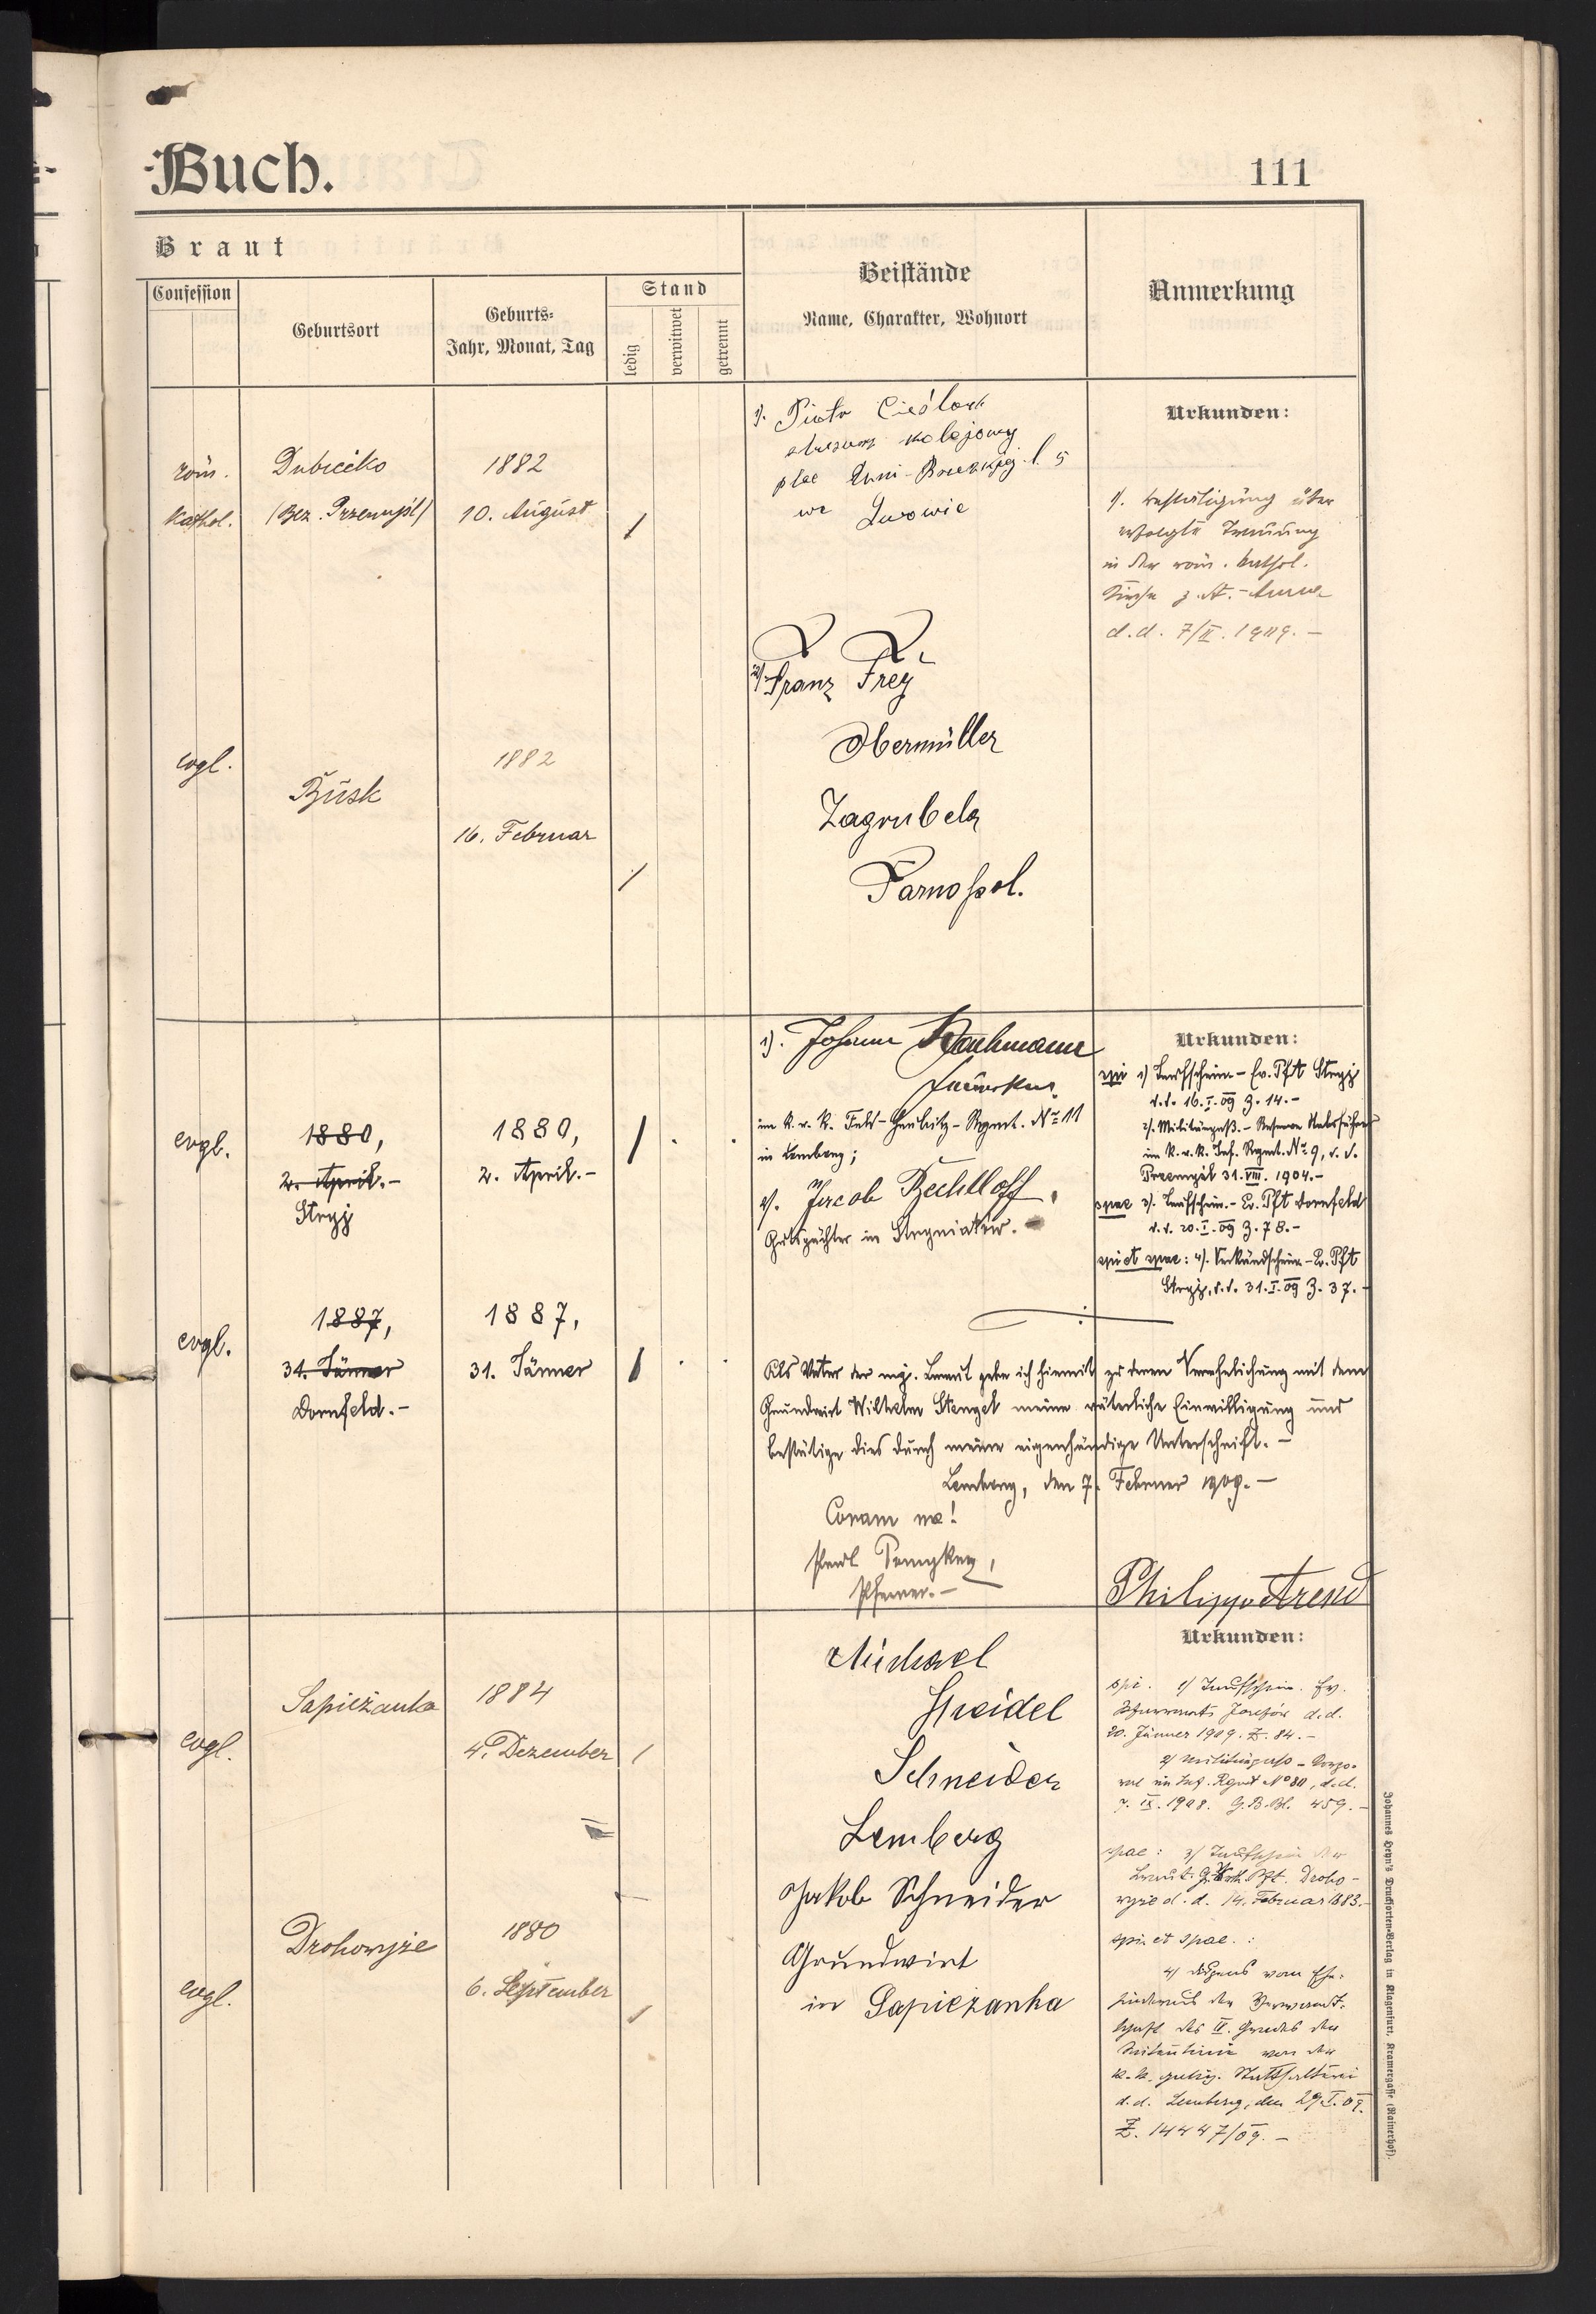 Buch.
111
Braut
Confession
Geburtsort
Geburts-
Jahr, Monat, Tag
Stand
ledig
verwitwet
getrennt
Beistände
Name, Charakter, Wohnort
Anmerkung
röm.
kathol.
Dubiecko
(Bez. Przemyśl)
1882
10. August
1). Piotr Cieślak
kolejowy
plac l. 5
we Lwowie
Urkunden:
1). Bestätigung über
erfolgte Trauung
in der röm. kathol.
Kirche z. St. Anna
d.d. 7/II. 1909. –
evgl.
Busk
1882
16. Februar
2) Franz Frey
Obermüller
Zagrobela
Tarnopol.
evgl.
1880,
2. April. –
Stryj
1880,
2. April. –
1). Johann
im k. u. k. Feld-Haubitz-Regmt. No 11
in Lemberg;
2). Jacob Bechtloff,
Gutspächter in
Urkunden:
spi 1) Taufschein – Ev. Pft Stryj
d.d. 16. I. 09 Z. 14. –
2). Militärpaß. – Reserve
im k. u. k. Inf. Regmt. No 9, d. d.
Przemyśl 31. VIII. 1904. –
spae 3). Taufschein. – Ev. Pft Dornfeld
d.d. 20. I. 09 Z. 78. –
spi et spae: 4). Verkündschein – Ev. Pft
Stryj, d.d. 31. I. 09 Z. 37. –
evgl.
1887,
31. Jänner
Dornfeld. –
1887,
31. Jänner
Als Vater der mj. Braut gebe ich hiermit zu deren Verehelichung mit dem
Grundwirt Wilhelm Stengel meine väterliche Einwilligung und
bestätige dies durch meine eigenhändige Unterschrift. –
Lemberg, den 7. Februar 1909. –
Coram me!
Pfarrer. –
Philipp Arend
evgl.
Sapieżanka
1884
4. Dezember
Michael
Schneider
Lemberg
Jakob Schneider
Grundwirt
in Sapiezanka
Urkunden:
spi. 1) Taufschein. Ev.
Pfarramt Józefów d.d.
20. Jänner 1909. Z. 84. –
2) Militärpass – Corpo-
ral im Inf. Rgmt No 80, d.d.
7. IX. 1908. G.B.Bl. 459. –
evgl.
Drohowyże
1880
6. September
spae: 3) Taufschein der
Braut. Pft. Droho-
wyże d. d. 14. Februar 1883. –
spi. et spae. :
4) Dispens vom Ehe-
hindernis der Verwandt-
schaft des II. Grades der
Seitenlinie von der
k. k. galiz. Statthalterei
d. d. Lemberg, den 29. I. 09.
Z. 14447/09. –
Johannes Heyn's Drucksorten-Verlag in Klagenfurt, Kramergasse (Rainerhof).